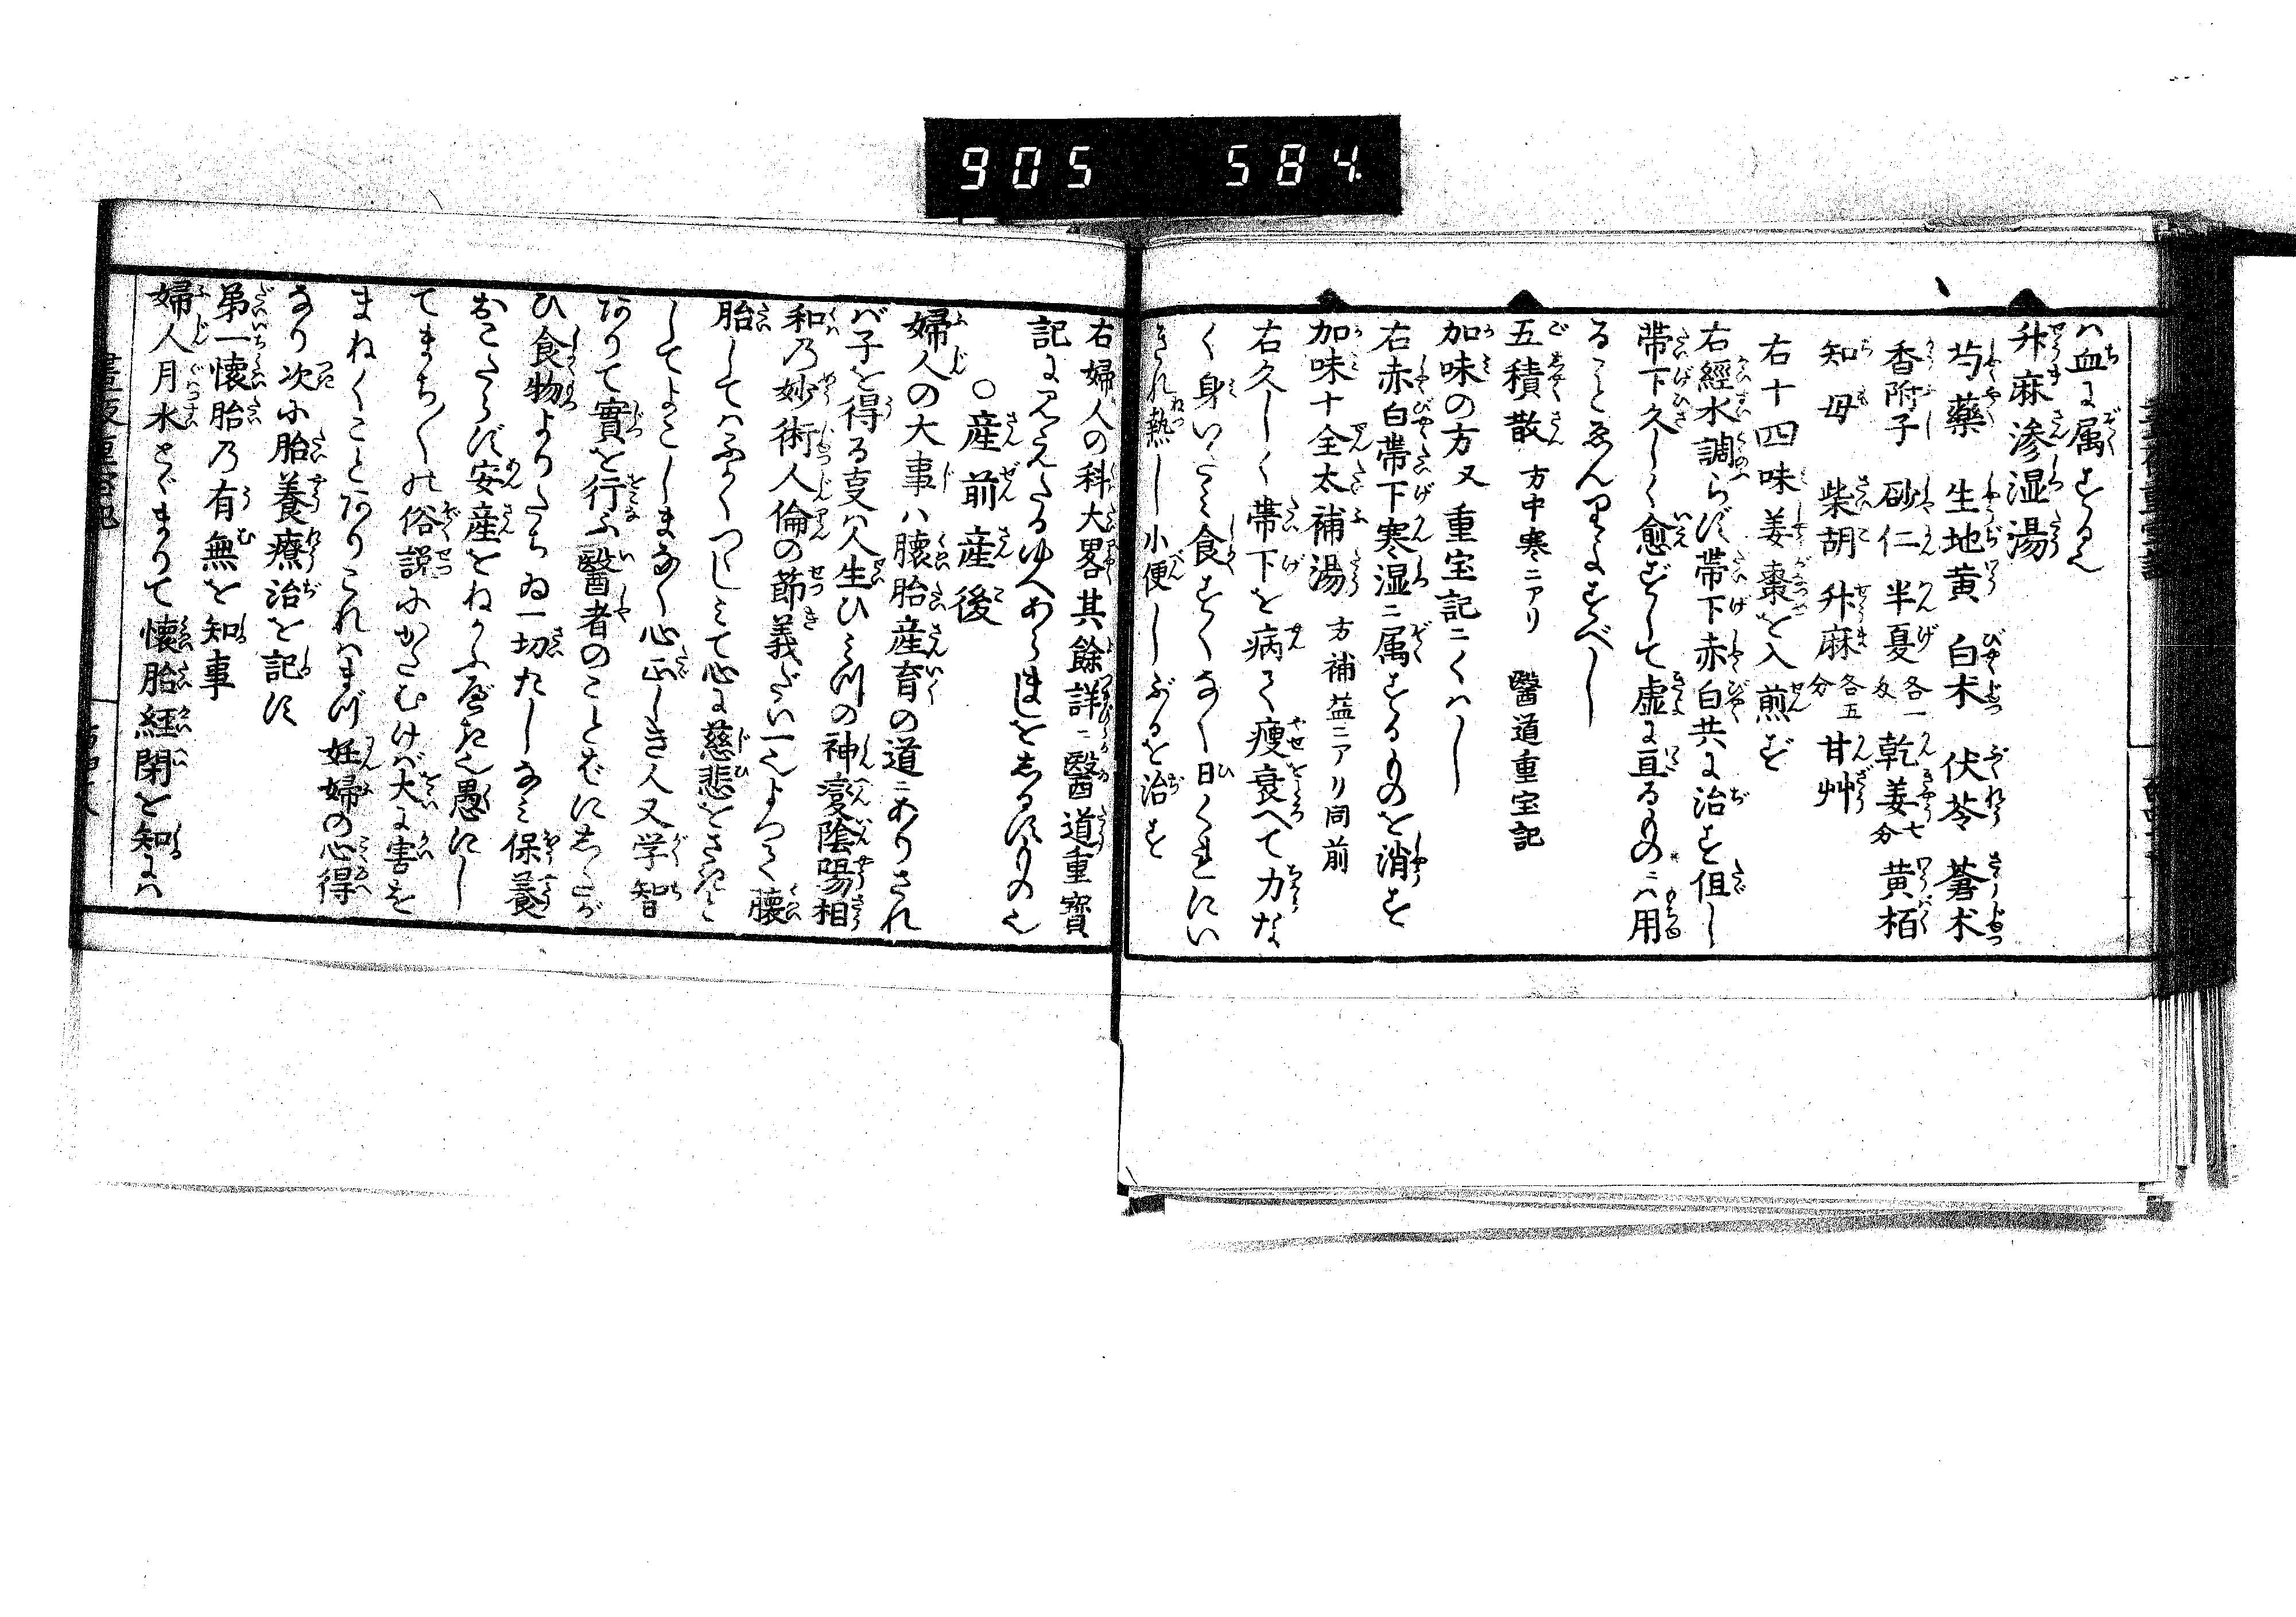 905 584
ハ血に属するん
升麻滲湿湯
芍藥 生地黄 白朮 伏苓 蒼朮
香附子 砂仁 半夏各一匁 乾姜七分 黄栢
知母 柴胡 升麻各五分 甘艸
右十四味姜棗を入煎ず
右經水調らず帯下赤白共に治す但し
帯下久しく愈ずして虚に亘るものニハ用
ることゑんりよすべし
五積散 方中寒ニアリ 醫道重宝記
加味の方又重宝記ニくハし
右赤白帯下寒湿ニ属するものを消す
加味十全太補湯 方補益ニアリ同前
右久しく帯下を病て痩衰へて力な
く身いたみ食すくなく日くれにい
きれ熱し小便しぶるを治す
右婦人の科大畧其餘詳ニ醫道重寳
記に見えたるゆへあらましをしるすもの也
○産前産後
婦人の大事ハ懐胎産育の道ニありされ
バ子を得る事ハ人生ひとつの神変陰陽相
和乃妙術人倫の節義だい一也よつて懐
胎してハふかくつゝしミて心に慈悲をさきと
してよこしまなく心正しき人又学智
ありて實を行ふ醫者のことばにしたが
ひ食物よりたちゐ一切たしなミ保養
おこたらず安産をねがふべき也愚にし
てまち〳〵の俗説にかたむけバ大に害を
まねくことありこれハまづ妊婦の心得
なり次に胎養療治を記す
第一懐胎乃有無を知事
婦人月水とゞまりて懐胎経閉を知にハ